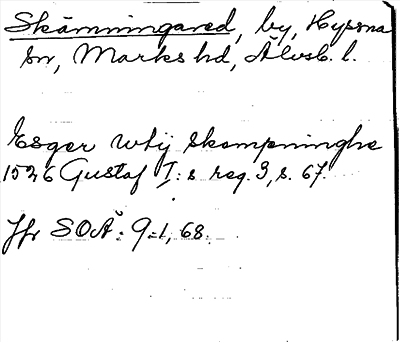 Skämningared, by, Hyssna
sn, Marks hd, Älvsb. l.
Esger wtij skempninghe
1526 Gustaf I:s reg. 3, s. 67.
Jfr SOÄ: 9:1, 68.